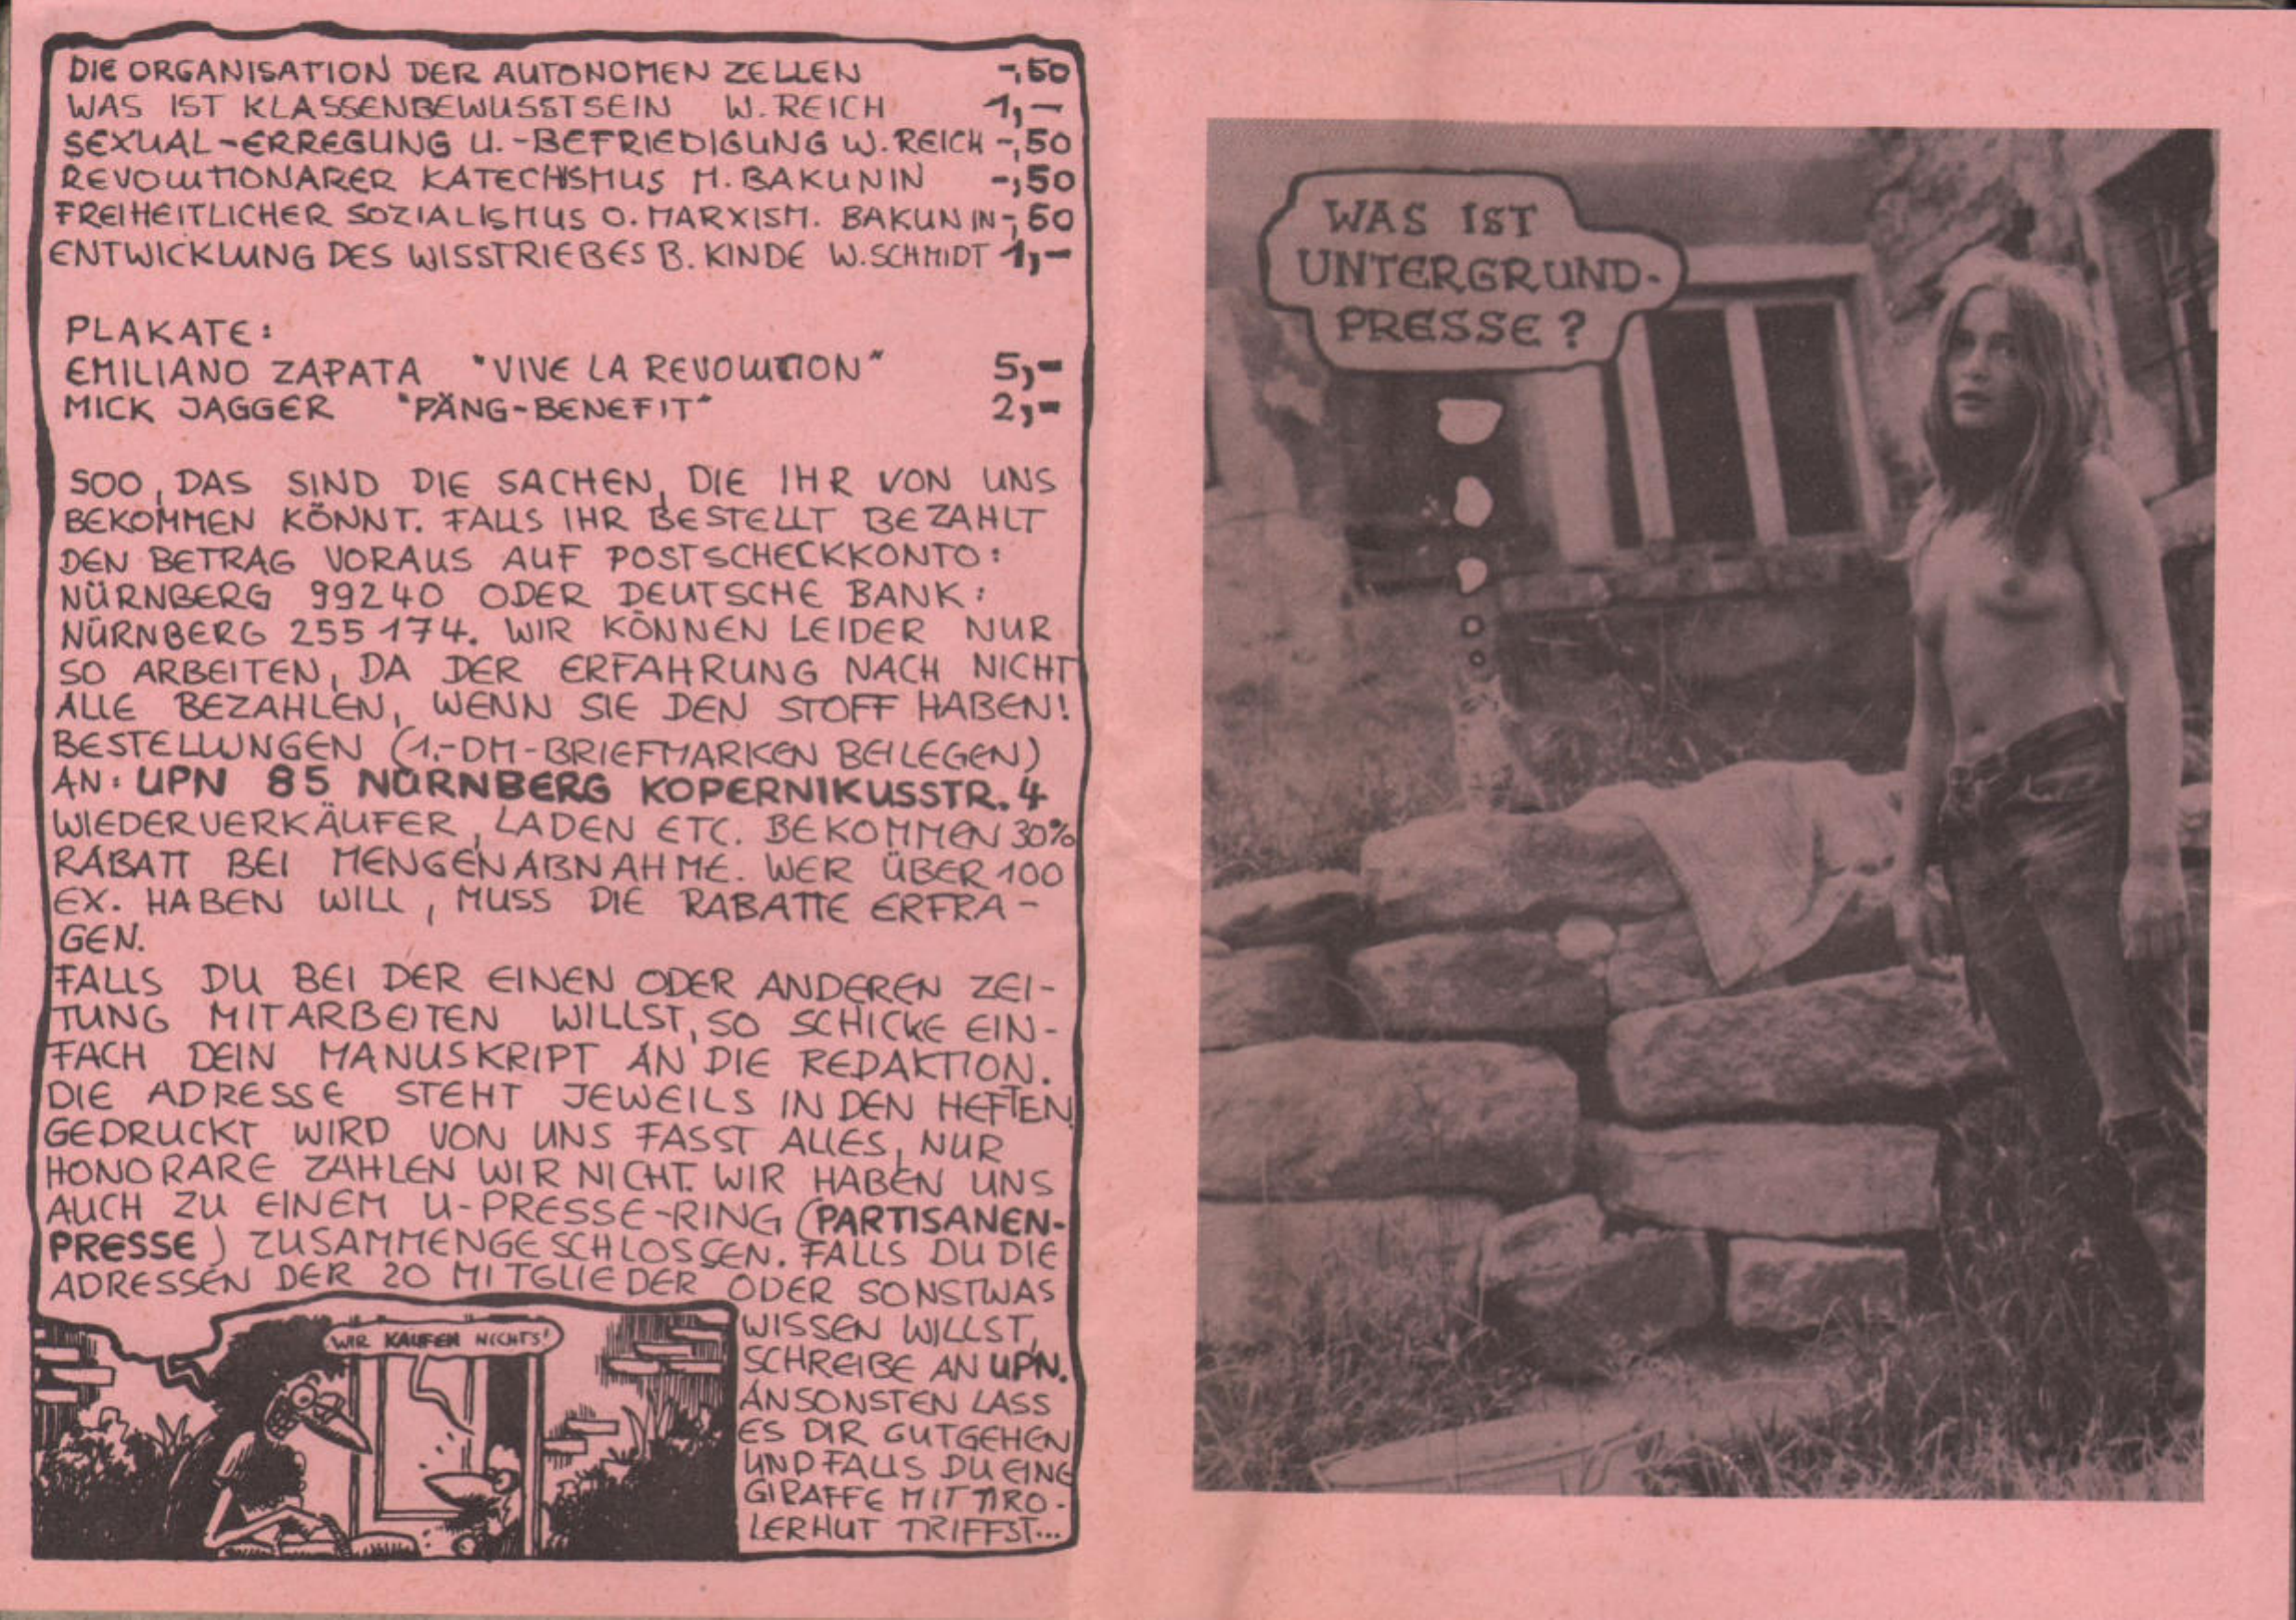 DIE ORGANISATION DER AUTONOMEN ZELLEN -,50
WAS IST KLASSENBEWUSSTSEIN W. REICH 1,-
SEXUAL-ERREGUNG U.-BEFRIEDIGUNG W. REICH -,50
REVOLUTIONARER KATECHISMUS M. BAKUNIN -,50
FREIHEITLICHER SOZIALISMUS O. MARXISM. BAKUNIN -,50
ENTWICKLUNG DES WISSTRIEBES B. KINDE W. SCHMIDT 1,-
PLAKATE:
EMILIANO ZAPATA "VIVE LA REVOLUTION" 5,-
MICK JAGGER "PÄNG-BENEFIT" 2,-
SOO, DAS SIND DIE SACHEN, DIE IHR VON UNS
BEKOMMEN KÖNNT. FALLS IHR BESTELLT BEZAHLT
DEN BETRAG VORAUS AUF POSTSCHECKKONTO:
NÜRNBERG 99240 ODER DEUTSCHE BANK:
NÜRNBERG 255174. WIR KÖNNEN LEIDER NUR
SO ARBEITEN, DA DER ERFAHRUNG NACH NICHT
ALLE BEZAHLEN, WENN SIE DEN STOFF HABEN!
BESTELLUNGEN (1.-DM-BRIEFMARKEN BEILEGEN)
AN: UPN 85 NÜRNBERG KOPERNIKUSSTR. 4
WIEDERVERKÄUFER, LADEN ETC. BEKOMMEN 30%
RABATT BEI MENGENABNAHME. WER ÜBER 100
EX. HABEN WILL, MUSS DIE RABATTE ERFRA-
GEN.
FALLS DU BEI DER EINEN ODER ANDEREN ZEI-
TUNG MITARBEITEN WILLST, SO SCHICKE EIN-
FACH DEIN MANUSKRIPT AN DIE REDAKTION.
DIE ADRESSE STEHT JEWEILS IN DEN HEFTEN
GEDRUCKT WIRD VON UNS FASST ALLES, NUR
HONORARE ZAHLEN WIR NICHT. WIR HABEN UNS
AUCH ZU EINEM U-PRESSE-RING (PARTISANEN-
PRESSE) ZUSAMMENGESCHLOSSEN. FALLS DU DIE
ADRESSEN DER 20 MITGLIEDER ODER SONSTWAS
WISSEN WILLST,
SCHREIBE AN UPN.
ANSONSTEN LASS
ES DIR GUTGEHEN
UND FALLS DU EINE
GIRAFFE MIT TIRO-
LERHUT TRIFFST...
WIR KAUFEN NICHTS!
WAS IST
UNTERGRUND-
PRESSE?